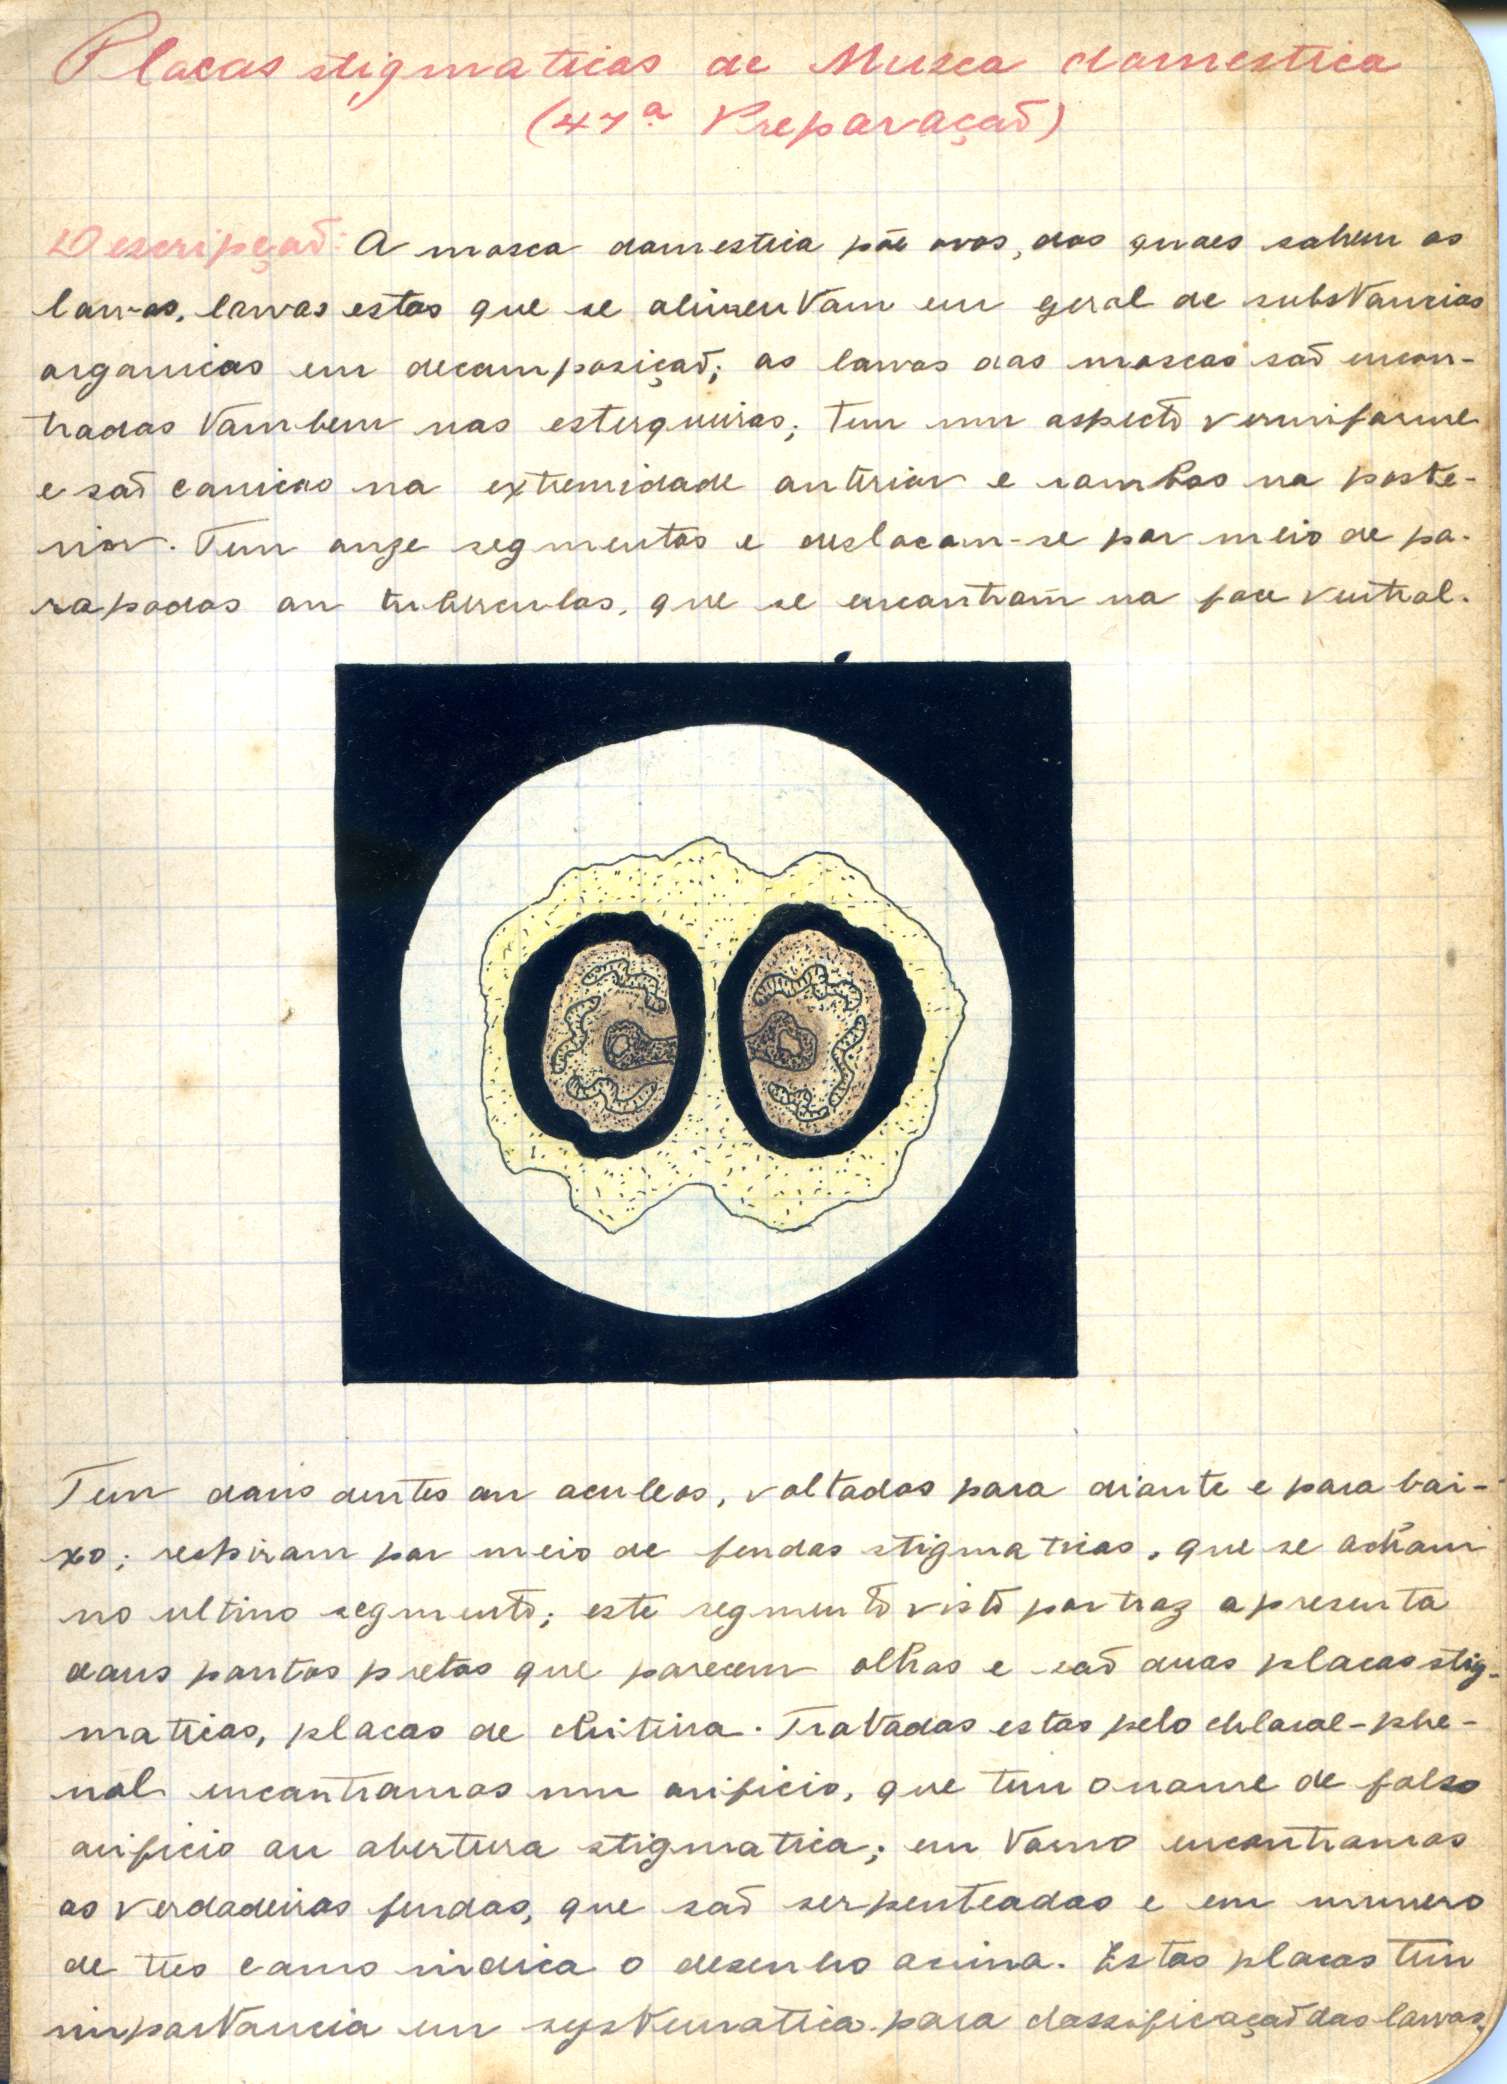 Placas stigmaticas de Musca domestica
(47ª Preparação)
Descripção: A mosca domestica põe ovos, dos quaes sahem as
larvas, larvas estas que se alimentam em geral de substancias
organicas em decomposição; as larvas das moscas são encon-
tradas tambem nas esterqueiras; tem um aspecto vermiforme
e são conicas na extremidade anterior e rombas na poste-
rior. Tem onze segmentos e deslocam-se por meio de pa-
rapodos ou tuberculos, que se encontram na face ventral.
Tem dous dentes ou aculeos, voltados para diante e para bai-
xo; respiram por meio de fendas stigmaticas, que se acham
no ultimo segmento; este segmento visto por traz apresenta
dous pontos pretos que parecem olhos e são duas placas stig-
maticas, placas de chitina. Tratadas estas pelo chloral-phe-
nol encontramos um orificio, que tem o nome de falso
orificio ou abertura stigmatica; em torno encontramos
as verdadeiras fendas, que são serpenteadas e em numero
de tres como indica o desenho acima. Estas placas tem
importancia em systematica para classificação das larvas.